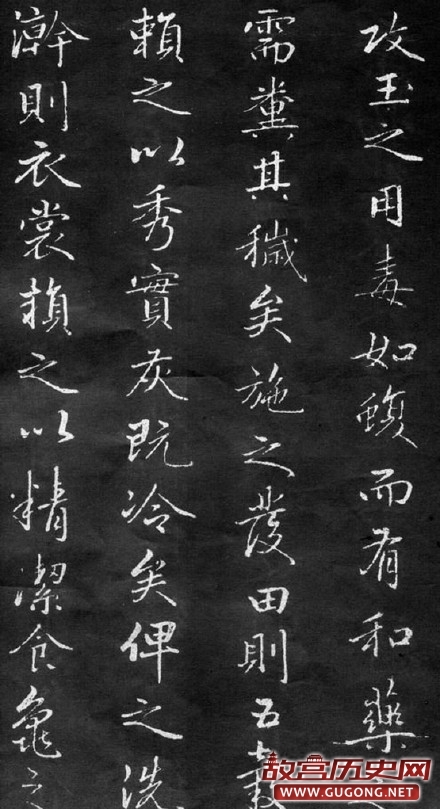 攻玉之用毒如蝮而有和藥
需糞其穢矣施之發田則五穀
賴之以秀實灰既冷矣俾之洗
澣則衣裳賴之以精潔食龜之
故宫历史网
WWW.GUGONG.NET